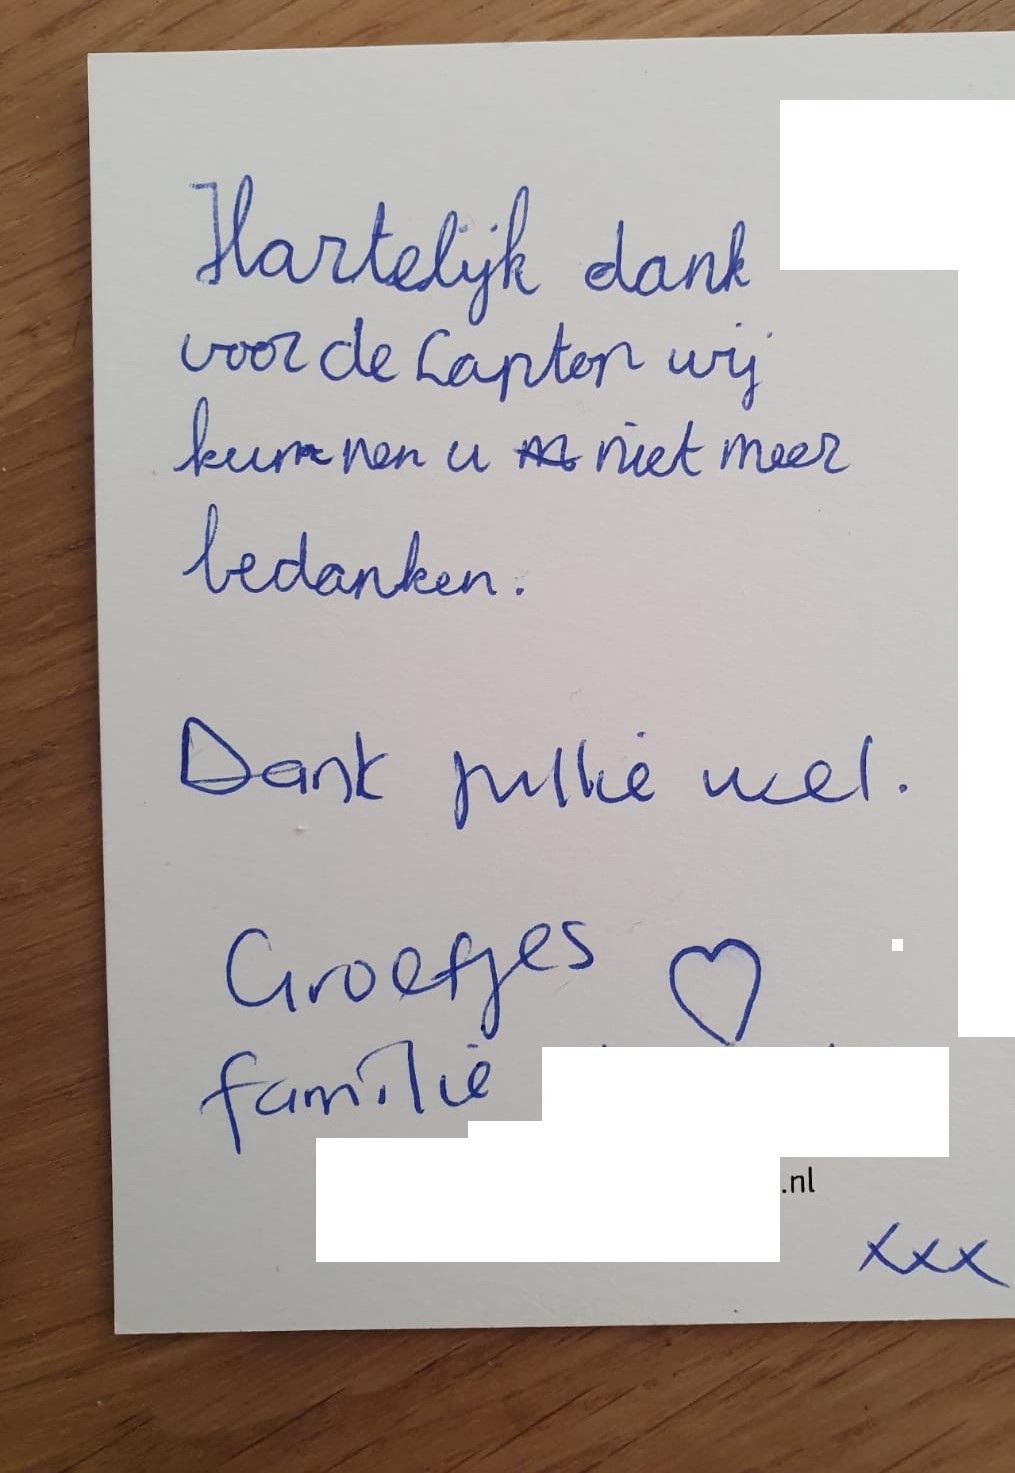 Hartelijk dank
voor de Laptop wij
kunnen u niet meer
bedanken.
Dank jullie wel.
Groetjes
familie
.nl
xxx